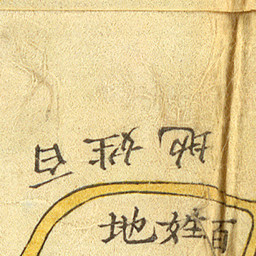 百姓地
百姓地